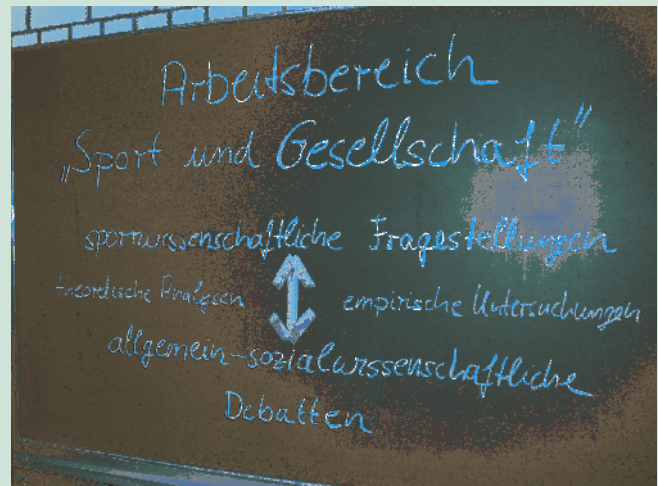 Arbeitsbereich
„Sport und Gesellschaft"
sportwissenschaftliche Fragestellungen
theoretische Analysen empirische Untersuchungen
allgemein-sozialwissenschaftliche
Debatten